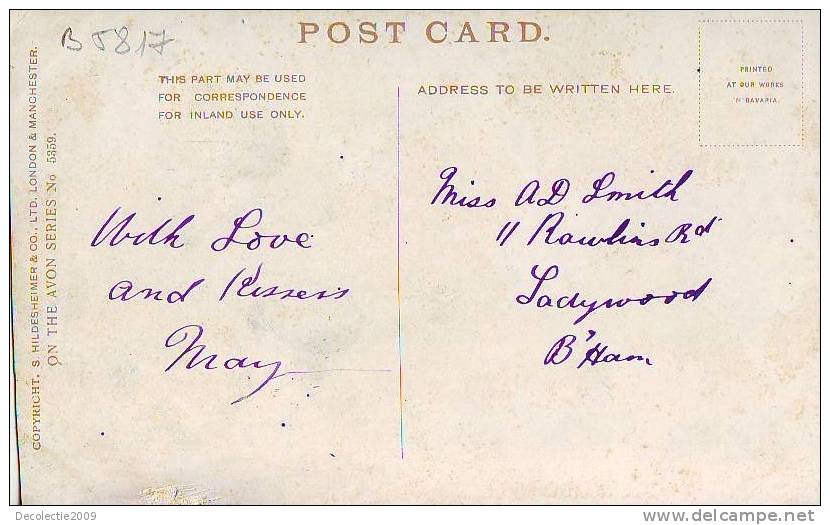 B 5817
POST CARD.
THIS PART MAY BE USED
FOR CORRESPONDENCE
FOR INLAND USE ONLY.
ADDRESS TO BE WRITTEN HERE.
PRINTED
AT OUR WORKS
IN BAVARIA.
COPYRIGHT. S. HILDESHEIMER & CO., LTD. LONDON & MANCHESTER.
ON THE AVON SERIES No 5359.
With Love
and Kissers
May
Miss AD Smith
11 Rawlins Rd
Ladywood
B'Ham
Decolectie2009
delcampe.net